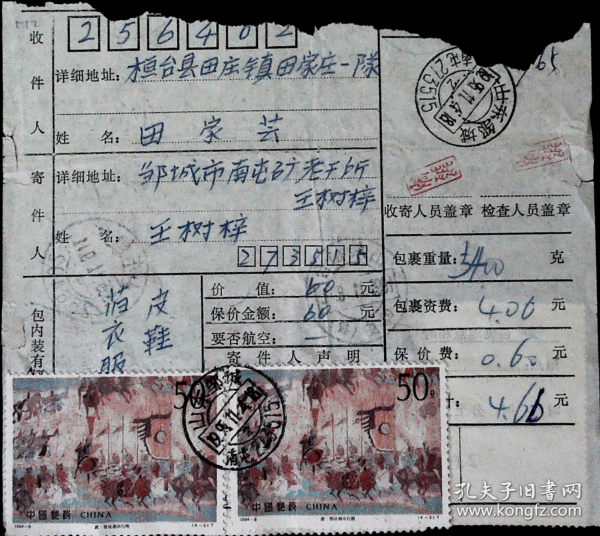 收件人
256402
详细地址：桓台县田庄镇田家庄一隊
姓 名：田家芸
寄件人
详细地址：邹城市南屯矿老干所
王树梓
姓 名：王树梓
273515
包内装有
皮鞋
衣服
价 值：60元
保价金额：60元
要否航空：—
寄件人声明
收寄人员盖章 检查人员盖章
包裹重量：克
包裹资费：4.06元
保价费：0.60元
计：4.66元
山东邹城
273515
山东邹城
50分
中国邮政 CHINA
1994-8
50分
中国邮政 CHINA
1994-8
孔夫子旧书网